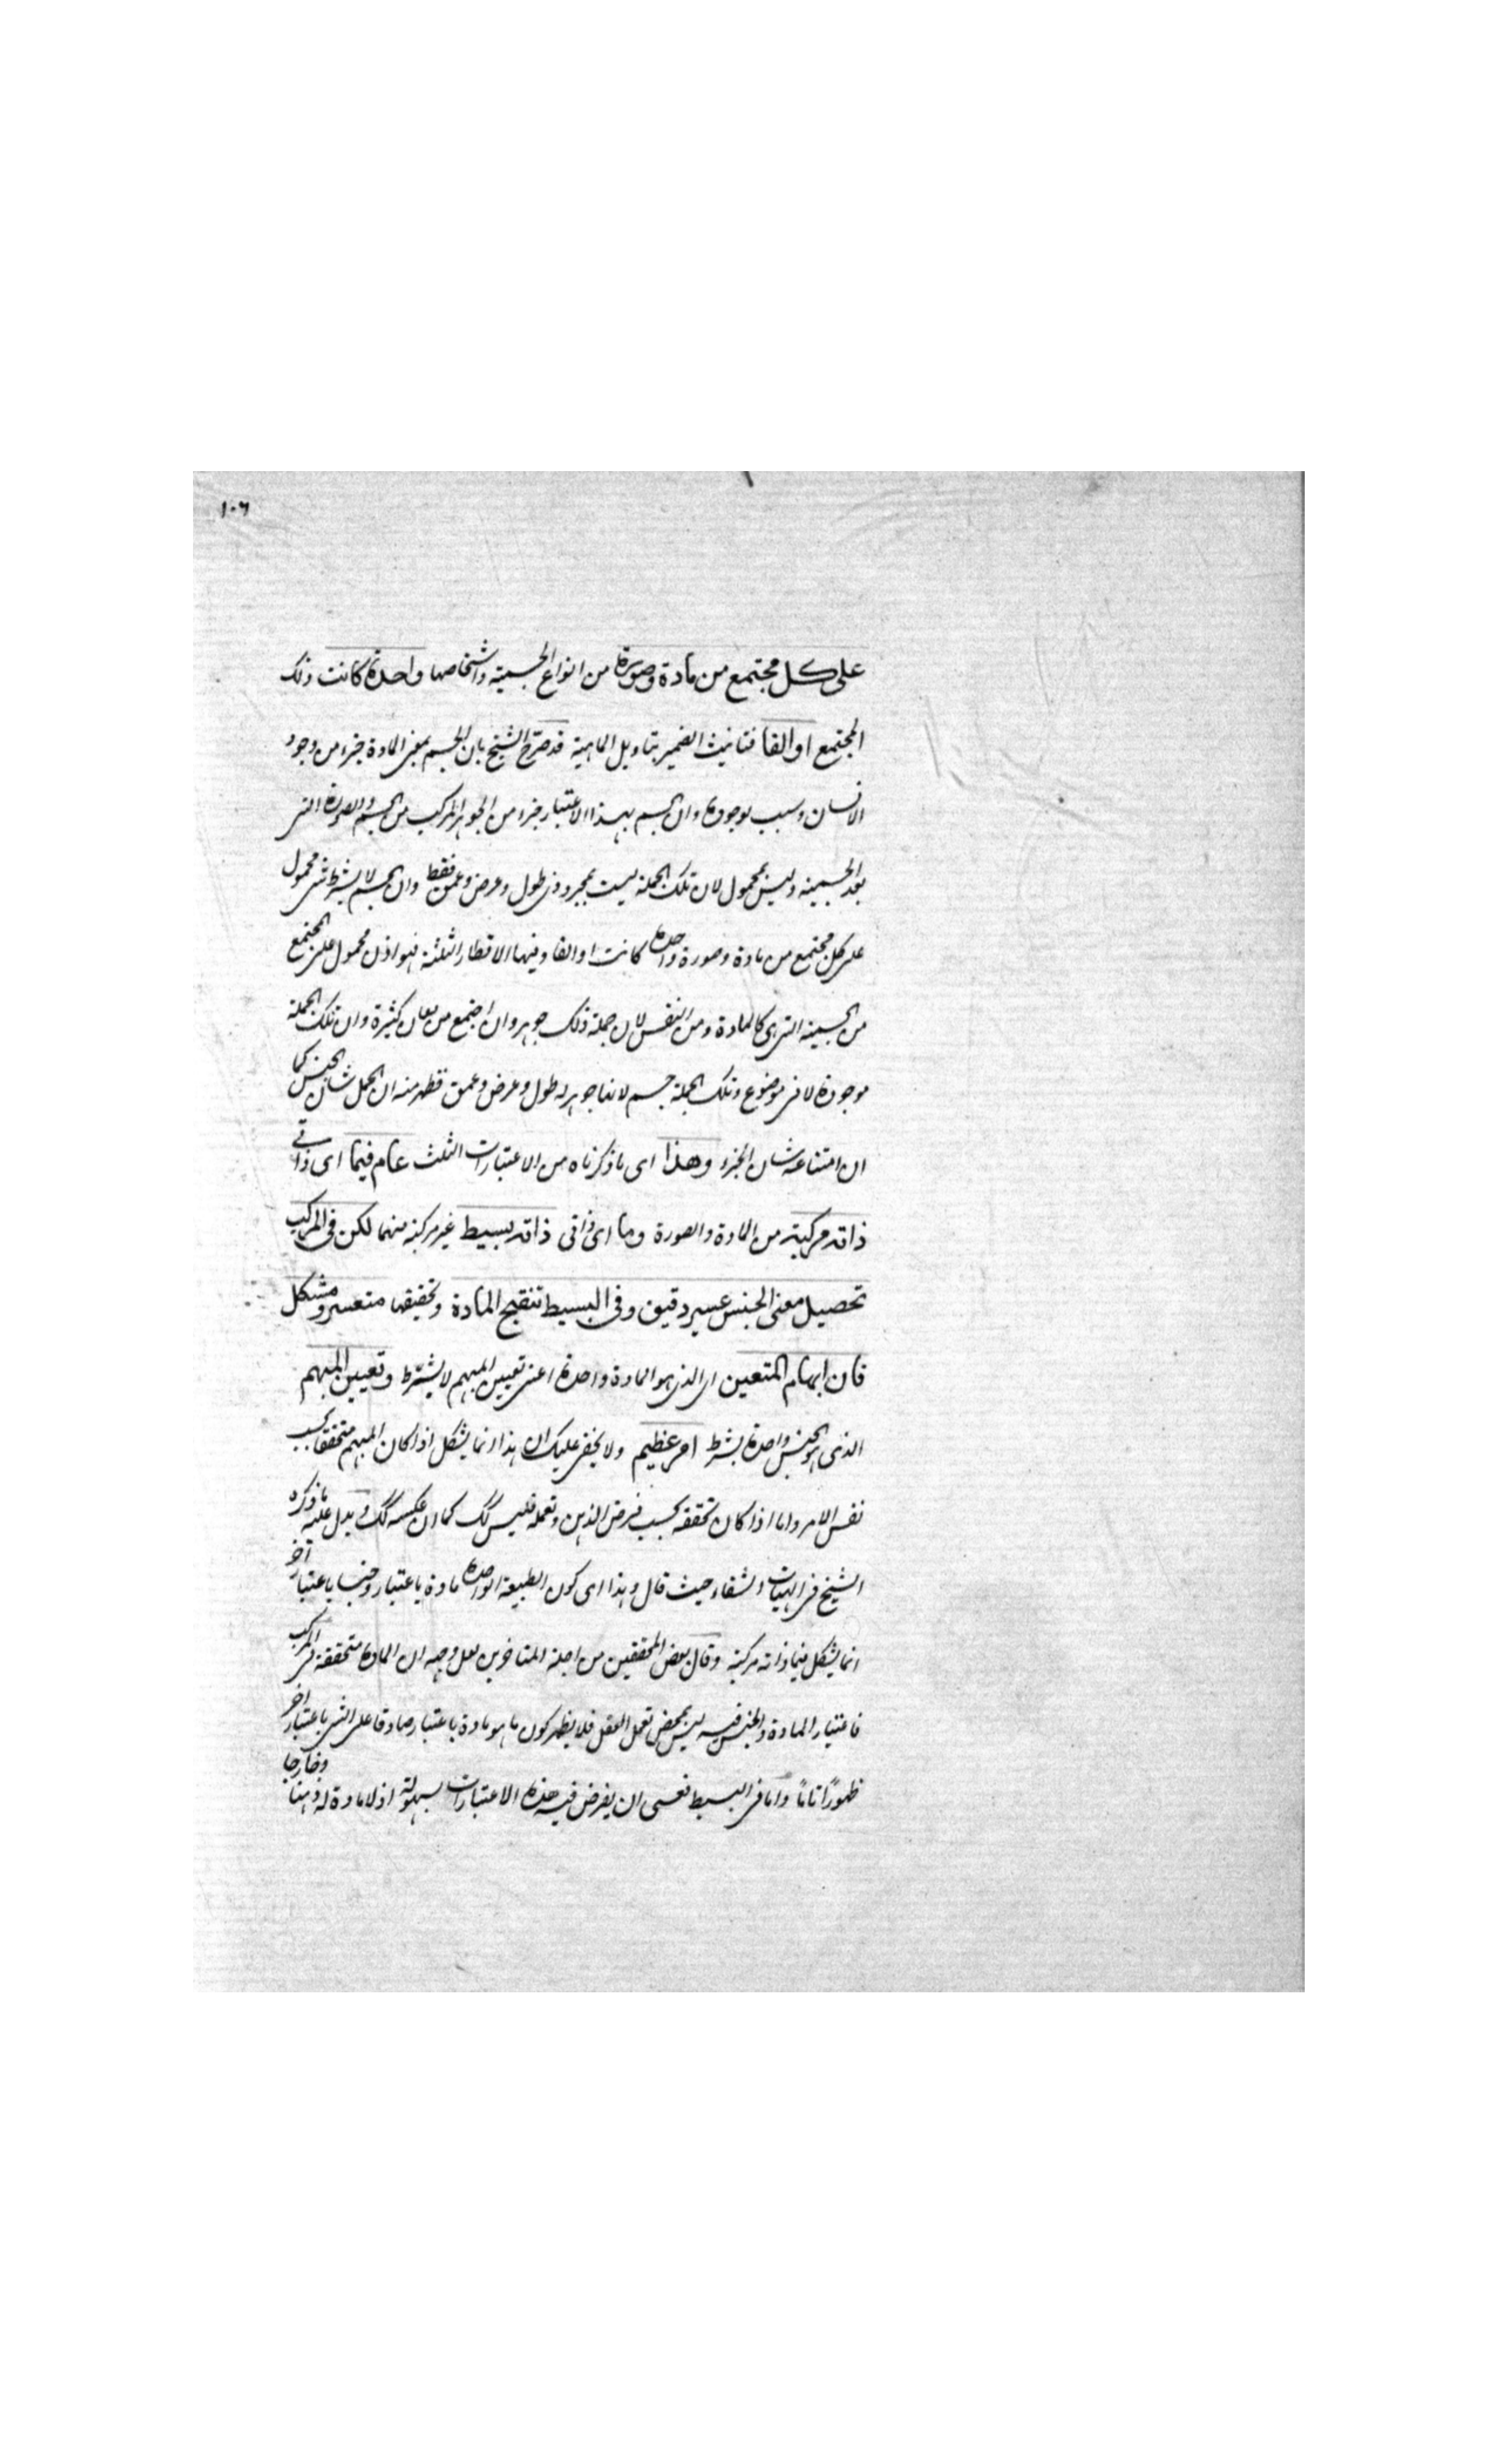 ١٠٦
على كل مجتمع من مادة وصورة من انواع الجسمية واشخاصها واحدة كانت ذلك
المجتمع او الفا فتانيث الضمير بتاويل الماهية قد صرّح الشيخ بان الجسم بمعنى المادة جزء من وجود
الانسان وسبب لوجوده وان الجسم بهذا الاعتبار جزء من الجوهر المركب من الجسم والصورة التى
بعد الجسمية وليس بمحمول لان تلك الجملة ليست بمجرد ذى طول وعرض وعمق فقط وان الجسم لا بشرط شى محمول
على كل مجتمع من مادة وصورة واحدة كانت او الفا وفيها الاقطار الثلثة فهو اذن محمول على المجتمع
من الجسمية التى كالمادة ومن النفس لان جملة ذلك جوهر وان اجتمع من معان كثيرة وان تلك الجملة
موجودة لا فى موضوع وتلك الجملة جسم لانها جوهر له طول وعرض وعمق فظهر منه ان الحمل شان الجنس كما
ان امتناعه شان الجزء وهذا اى ما ذكرناه من الاعتبارات الثلث عام فيما اى ذاتى
ذاته مركبة من المادة والصورة وما اى ذاتى ذاته بسيط غير مركبة منهما لكن فى المركب
تحصيل معنى الجنس عسير دقيق وفى البسيط تنقيح المادة وتحقيقها متعسر ومشكل
فان ابهام المتعين اى الذى هو المادة واحدة اعنى تعيين المبهم لا بشرط وتعيين المبهم
الذى هو الجنس واحدة بشرط امر عظيم ولا يخفى عليك ان هذا انما يشكل اذا كان المبهم متحققا بحسب
نفس الامر واما اذا كان تحققه بحسب فرض الذهن وتعمله فليس كك كما ان عكسه كك ويدل عليه ما ذكره
الشيخ فى الهيات الشفاء حيث قال وهذا اى كون الطبيعة الواحدة مادة باعتبار وجنسا باعتبار آخر
انما يشكل فيما ذاته مركبة وقال بعض المحققين من اجلة المتاخرين لعل وجهه ان المادة متحققة فى المركب
فاعتبار المادة والجنس فيه ليس بمحض تعمل العقل فلا يظهر كون ما هو مادة باعتبار صادقا على الشى باعتبار اخر
ظهورًا تامًا واما فى البسيط فعسى ان يفرض فيه هذه الاعتبارات بسهولة اذ لا مادة له ذهنا وخارجا